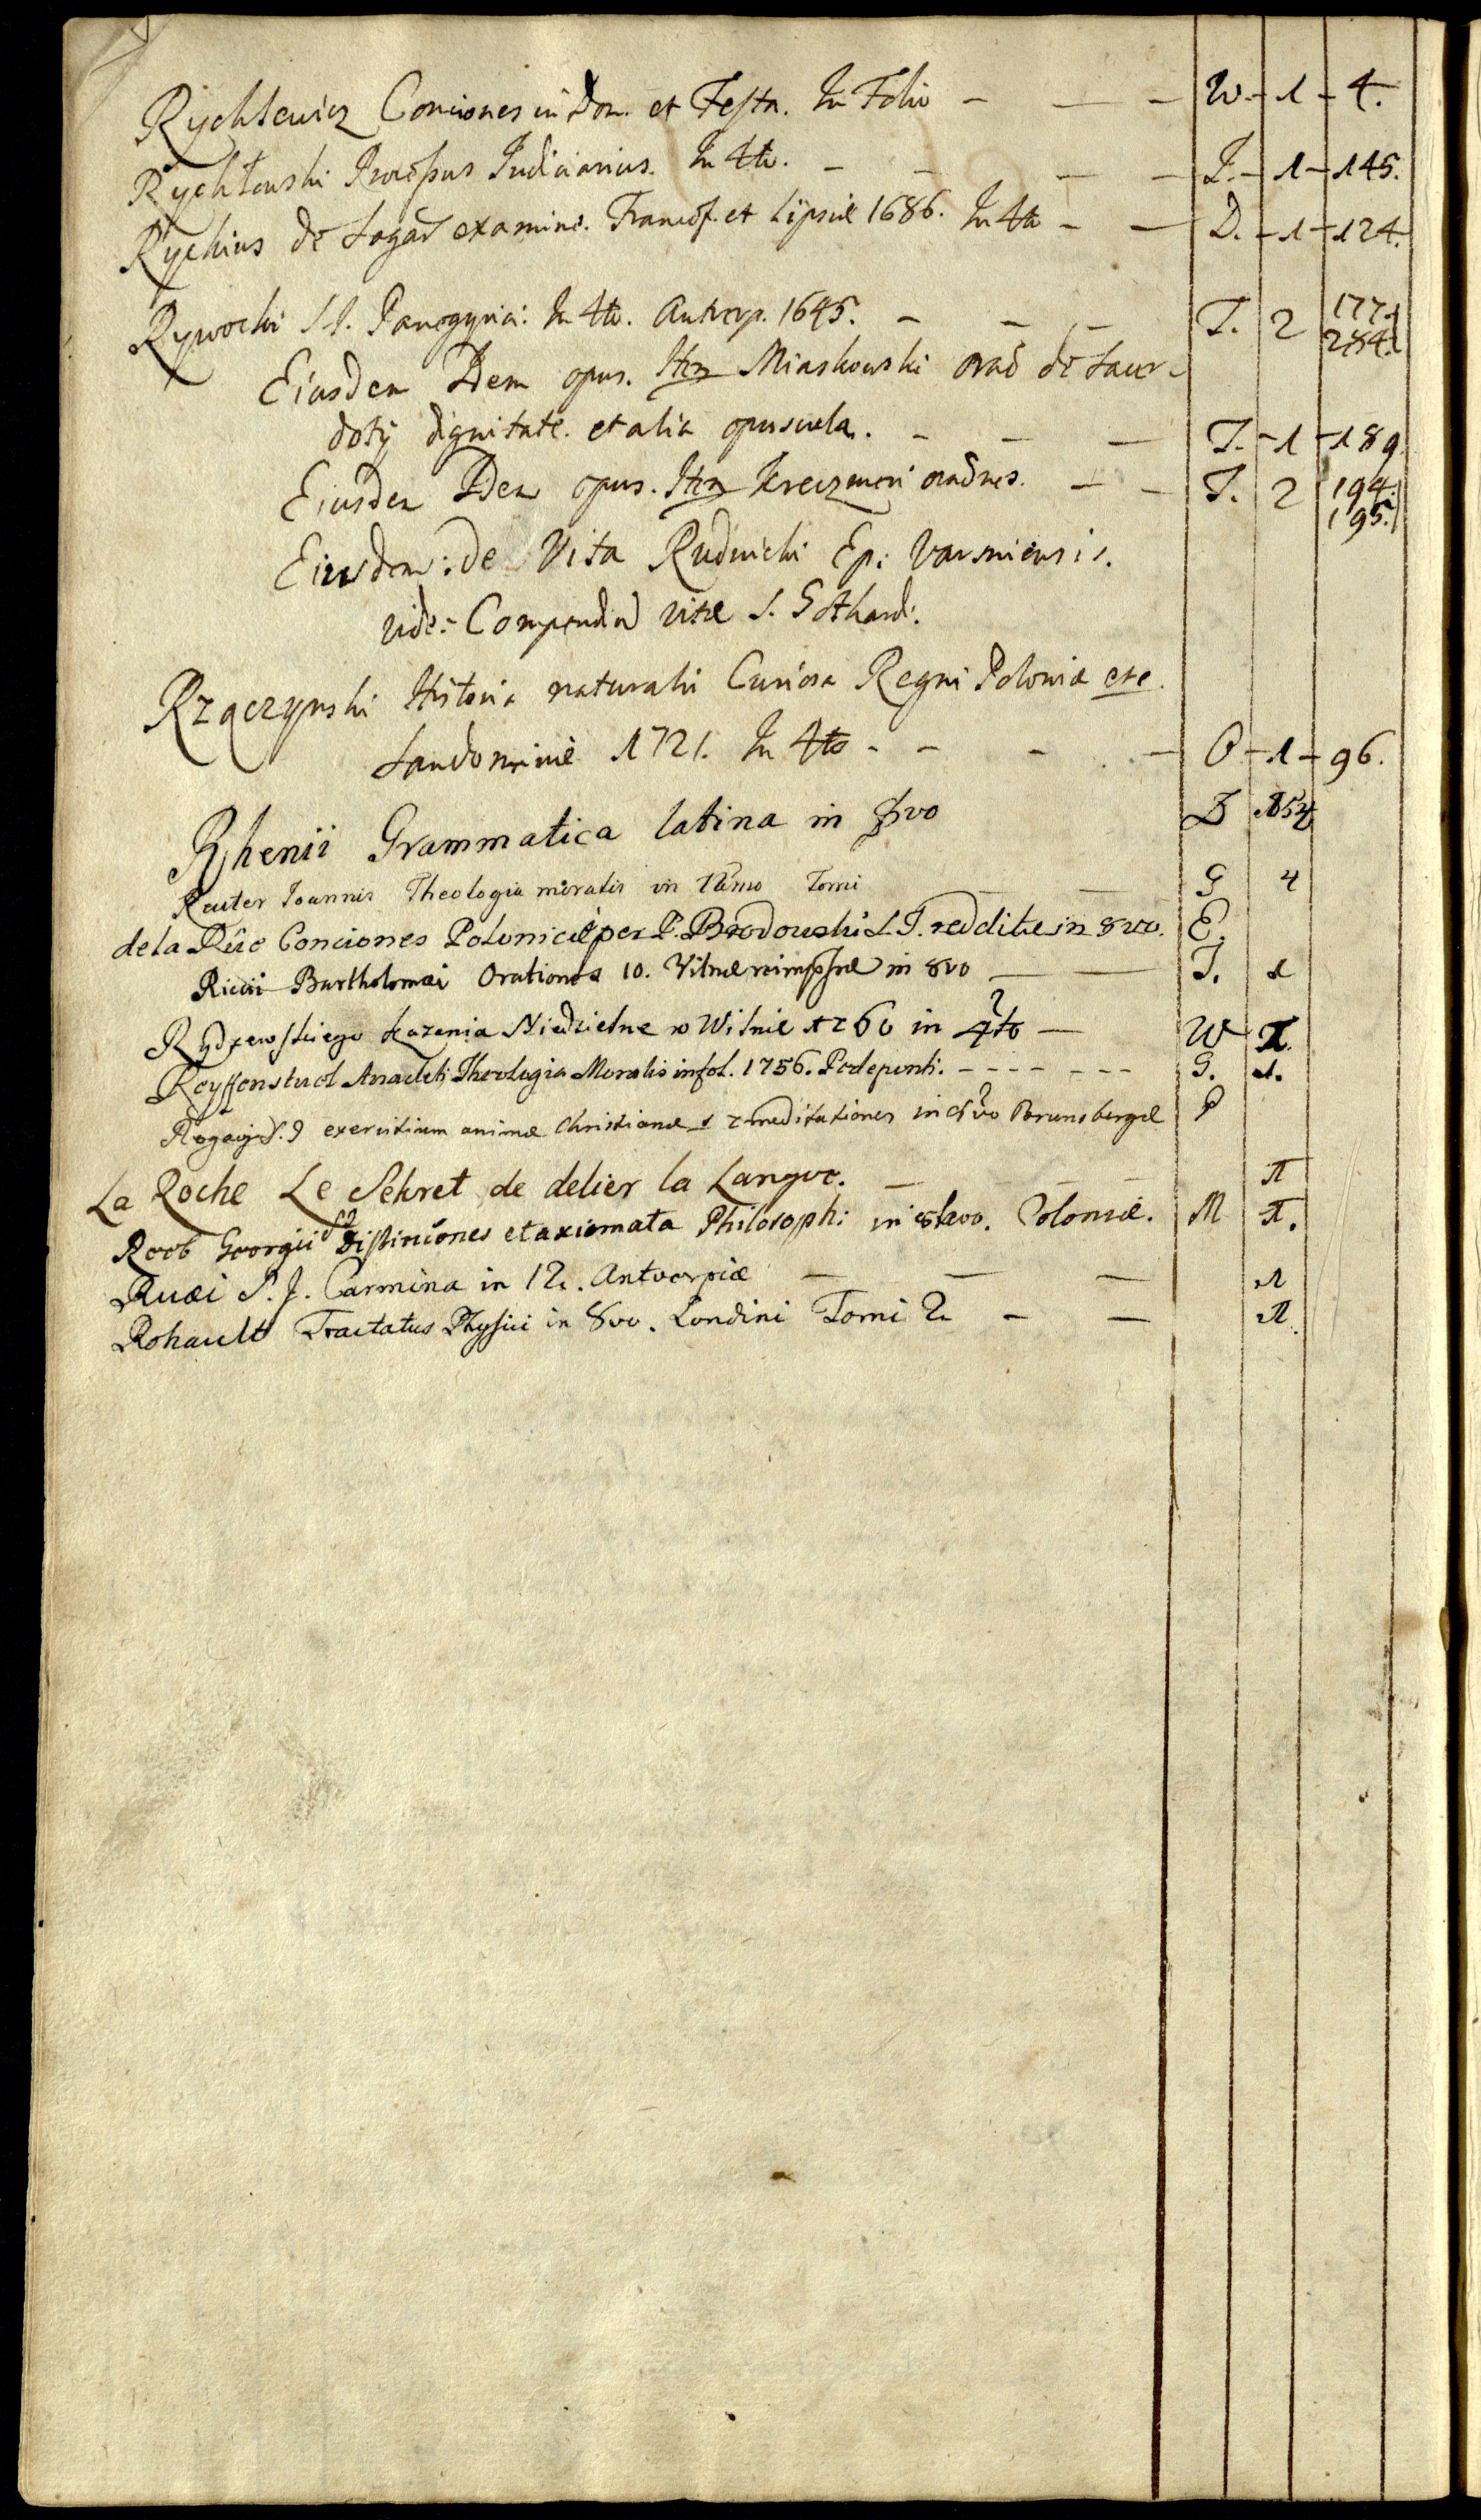 Rychlewicz Conciones in Dom. et Festa. In Folio — — — W. - 1 - 4.
Rychłowski Processus Judiciarius. In 4to. — — — — J. - 1 - 145.
Rychius de Sagar examine. Francof. et Lipsiæ 1686. In 4to — — D. - 1 - 124.
Rywocki S.J. Panegyrici. In 4to. Antverp. 1645. — — — T. 2 177. 284.
Eiusdem Idem opus. Item Miaskowski orаõ de Sacer-
dotij dignitate. et alia opuscula. — — — T. - 1 - 189.
Eiusdem Idem opus. Item Kreczmeri orãnes. — — T. 2 194. 195.
Eiusdem: De Vita Rudnicki Ep: Varmiensis.
vide: Compendiũ vitæ S. Gothardi.
Rzączynski Historia naturalis Curiosa Regni Poloniæ etc.
Sandomiriæ 1721. In 4to - - - - O - 1 - 96.
Rhenii Grammatica latina in 8vo D 154
Reuter Joannis Theologia moralis in 12mo Tomi — — G 4
de la Rüe Conciones Polonicæ per P. Brodowski S.J. redditæ in 8vo. E.
Riccii Bartholomæi Orationes 10. Vilnæ reimpssæ in 8vo — — T. 1
Rydzewskiego kazania Niedzielne w Wilnie 1760 in 4to — W
Reyffenstuel Anacleti Theologia Moralis in fol. 1756. Pedeponti. - - - - - - - G. 1.
Rogacij S.J exercitium animæ Christianæ meditationes in 8vo Brunsbergæ P
La Roche Le Sekret de delier la Langve. — — — 1
Reeb Georgii Distinciones et axiomata Philosoph: in 8tavo. Coloniæ. M 1.
Ruæi S.J. Carmina in 12. Antverpiæ — — — 1
Rohault Tractatus Physici in 8vo. Londini Tomi 2 — — 1.